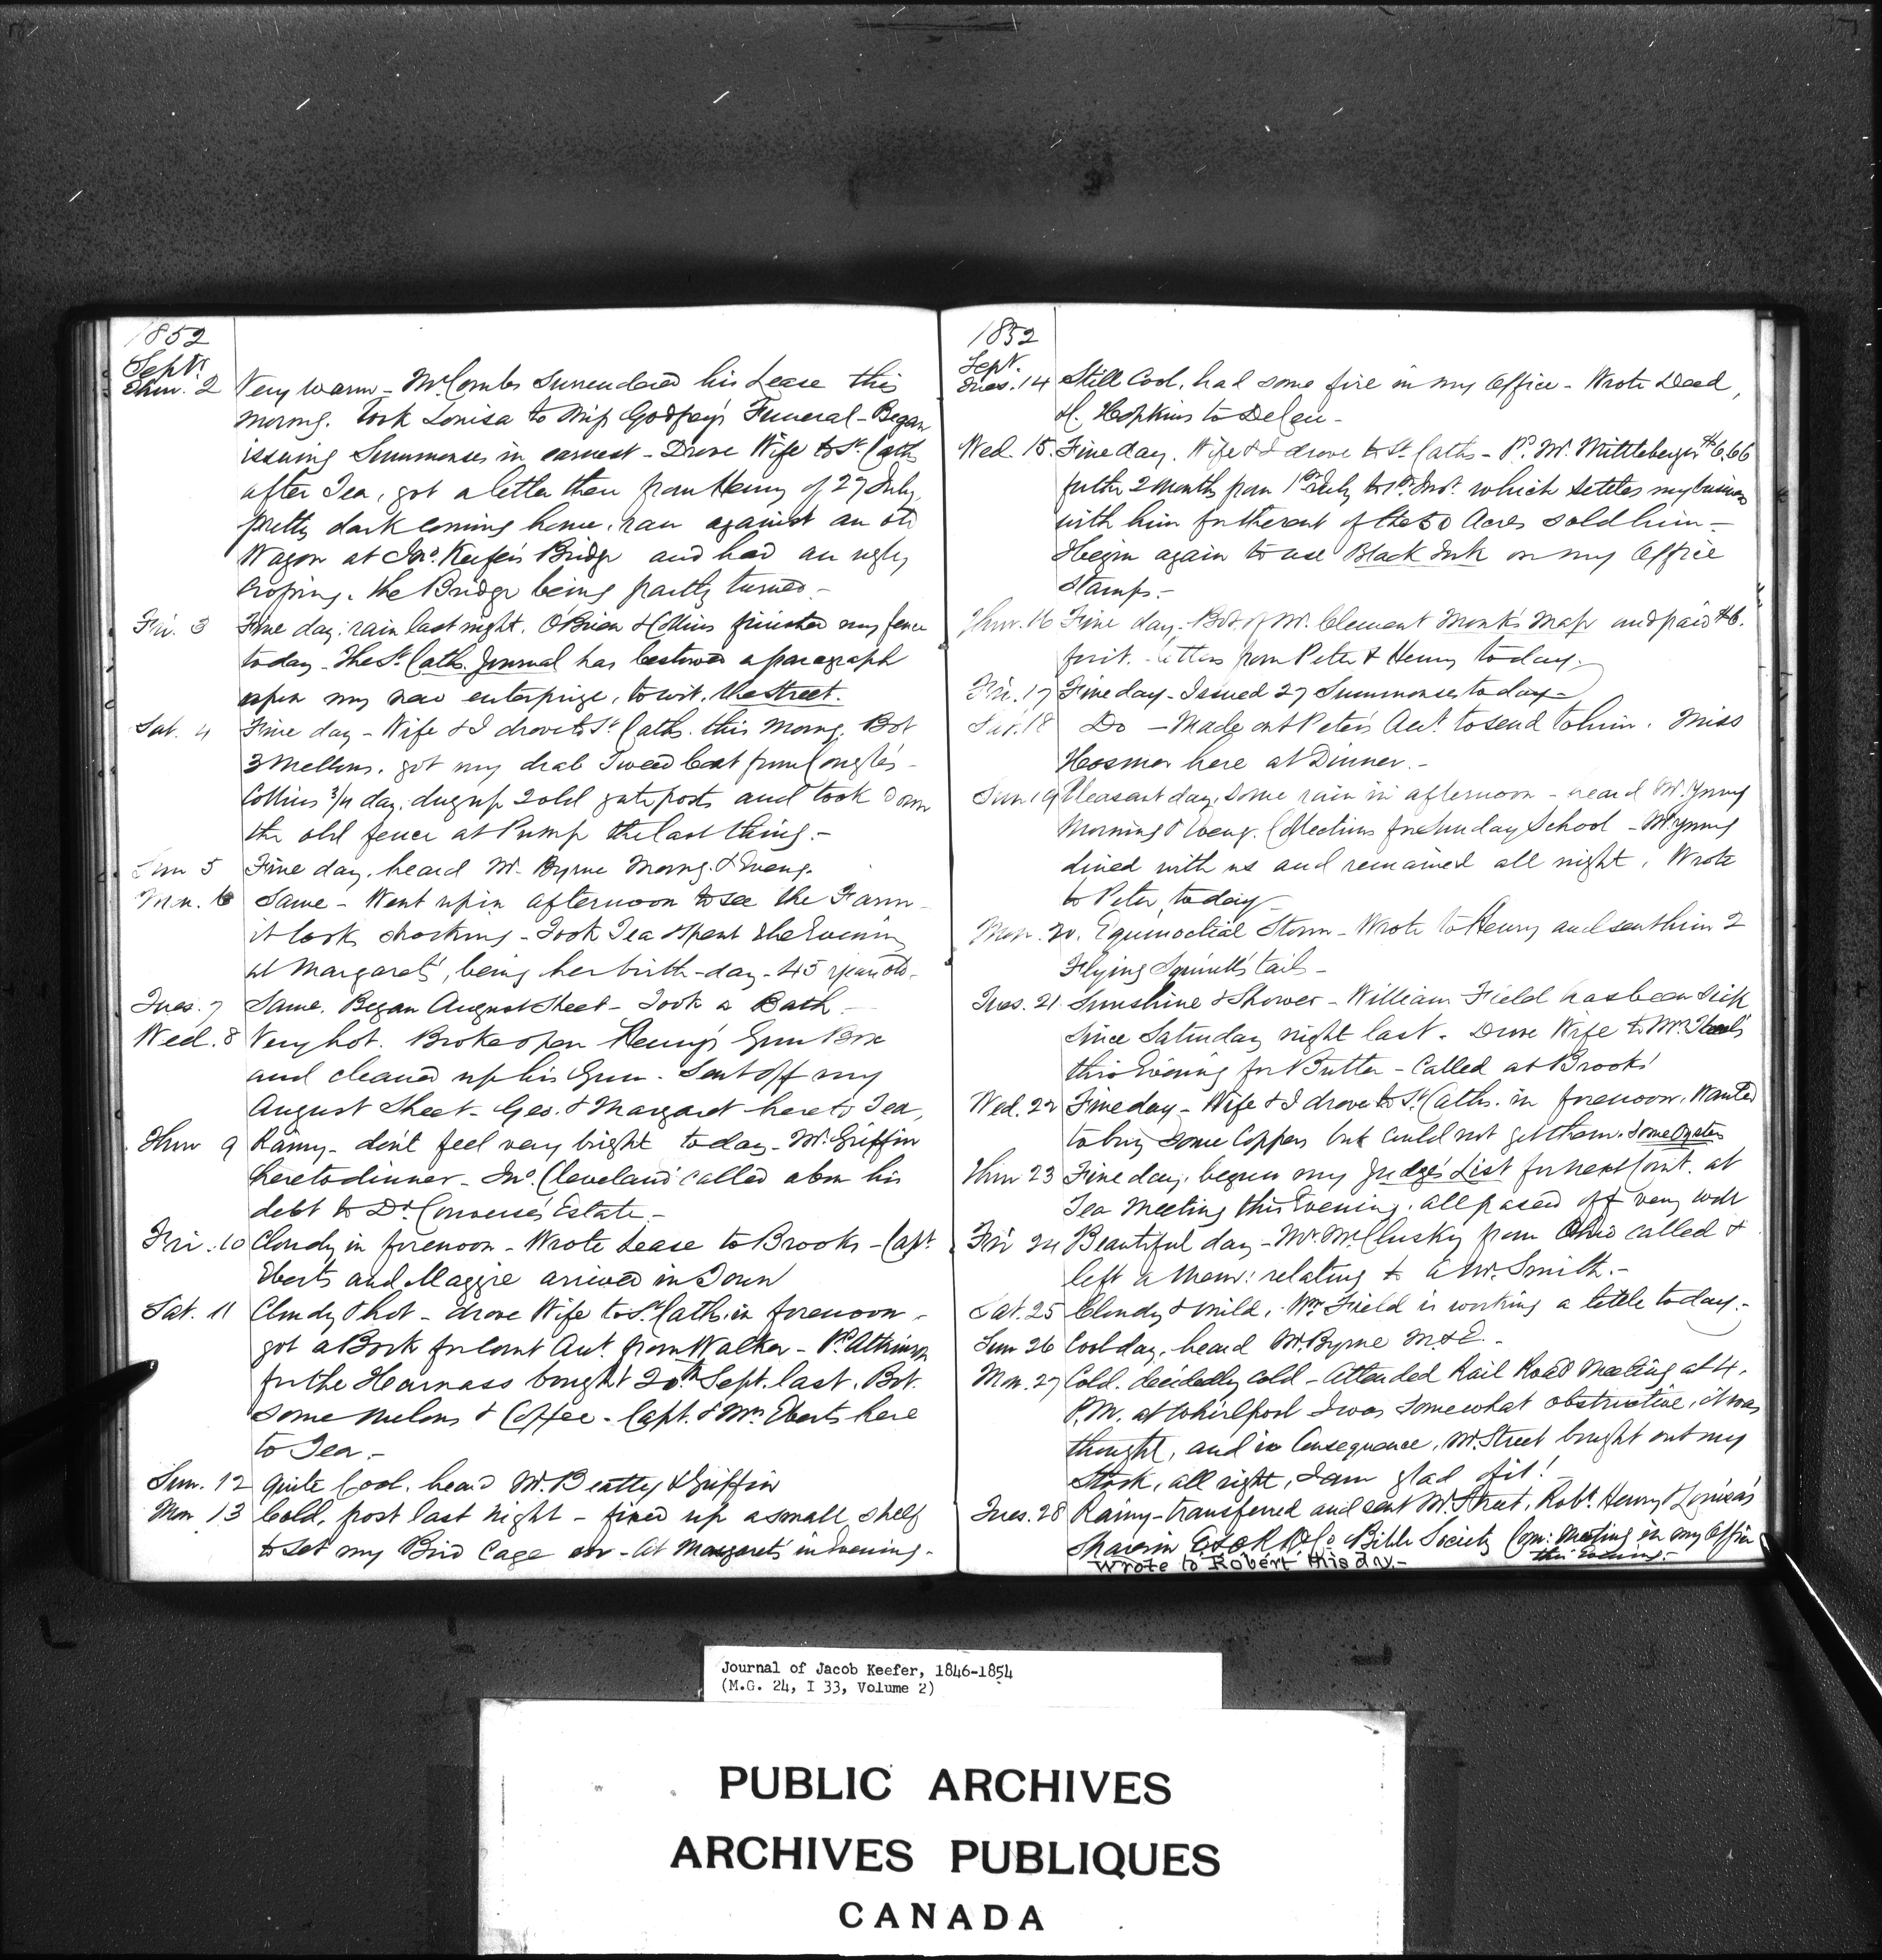 1852
Septr.
Thur. 2 Very warm - McCombs surrendered his Lease this
morng. Took Louisa to Miss Godfrey's Funeral - Began
issuing Summonses in earnest - Drove Wife to St. Caths
after Tea, got a letter there from Henry of 27 July,
pretty dark coming home, ran against an old
Wagon at Jno. Keefer's Bridge and had an ugly
croping, the Bridge being partly turned -
Fri. 3 Fine day: rain last night. O'Brien & Collins finished my fence
today - The St. Caths. Journal has bestowed a paragraph
upon my new enterprize, to wit, the Street.
Sat. 4 Fine day - Wife & I drove to St. Caths. this Morng. Bot
3 Mellons, got my drab Tweed Coat from
Collins 3/4 day, dug up 2 old gate posts and took down
the old fence at Pump the last thing. -
Sun 5 Fine day. heard Mr. Byrne Morng. & Eveng.
Mon. 6 Same - Went up in afternoon to see the Farm -
it looks shocking - Took Tea & spent the Evening
at Margaret's, being her birth-day - 45 years old -
Tues. 7 Same. Began August Sheet - Took a Bath -
Wed. 8 Very hot. Broke open Henry's Gun Box
and cleaned up his Gun - Sent off my
August Sheet - Geo. & Margaret here to Tea,
Thur 9 Rainy - don't feel very bright today - Mr. Griffin
here to dinner - Jno. Cleveland called abou his
debt to Dr. Converse's Estate. -
Fri. 10 Cloudy in forenoon - Wrote Lease to Brooks - Capt.
Eberts and Maggie arrived in Town
Sat. 11 Cloudy & hot - drove Wife to St. Caths. in forenoon -
got a Book for Court Act. from Walker - Pd. Atkinson
for the Harnass bought 20th. Sept. last. Bot.
some Melons & Coffee - Capt. & Mrs. Eberts here
to Tea -
Sun. 12 Quite Cool. heard Mr. Beatty & Griffin
Mon 13 Cold, frost last night - fixed up a small shelf
to set my Bird Cage on - At Margaret's in Evening -
1852
Sept.
Tues. 14 Still Cool, had some fire in my Office - Wrote Deed,
H. Hopkins to
Wed. 15. Fine day. Wife & I drove to St. Caths - Pd. W. Mittleberger $6.66
for the 2 months from 1st July to 1st Inst. which settles my business
with him for the rent of the 50 Acres sold him -
I begin again to use Black Ink on my Office
Stamps. -
Thur. 16 Fine day - Bot. of Mr. Clement Monk's Map and paid $6.
for it. - Letters from Peter & Henry today.
Fri. 17 Fine day - Issued 27 Summonses today -
Sat. 18 Do - Made out Peter's Act. to send to him. Miss
Hosmer here at Dinner. -
Sun 19 Pleasant day, Some rain in afternoon - heard Mr. Young
Morning & Eveng. Collections for Sunday School - Mr. Young
dined with us and remained all night. Wrote
to Peter today -
Mon. 20. Equinoctial Storm - Wrote to Henry and sent him 2
Flying Squirrell's tails -
Tues. 21 Sunshine & Shower - William Field has been sick
since Saturday night last. Drove Wife to Mr.
this Evening for Butter - Called at Brooks'
Wed. 22 Fine day - Wife & I drove to St. Caths. in forenoon. Wanted
to buy some Coppers but could not get them. Some Oysters
Thur 23 Fine day, begun my Judge's List for next Court. at
Tea Meeting this Evening. all passed off very well
Fri 24 Beautiful day - Mr. McClusky from Ohio called &
left a Mem: relating to a Mr. Smith. -
Sat. 25 Cloudy & mild, - Wm. Field is working a little today. -
Sun 26 Cool day, heard Mr. Byrne M. & E. -
Mon. 27 Cold. decidedly cold - Attended Rail Road Meeting at 4.
P.M. at Whirlpool I was somewhat obstructive, it was
thought, and in Consequence, Mr. Street bought out my
Stock, all right, I am glad of it! -
Tues. 28 Rainy - transferred and sent Mr. Street, Robt. Henry & Louisa's
Shares in Bible Society Com: Meeting in my Office
this Evening. -
Wrote to Robert this day. -
Journal of Jacob Keefer, 1846-1854
(M.G. 24, I 33, Volume 2)
PUBLIC ARCHIVES
ARCHIVES PUBLIQUES
CANADA